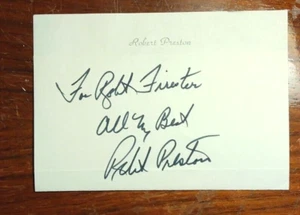 Robert Preston
For Robt Firester
All My Best
Robt Preston